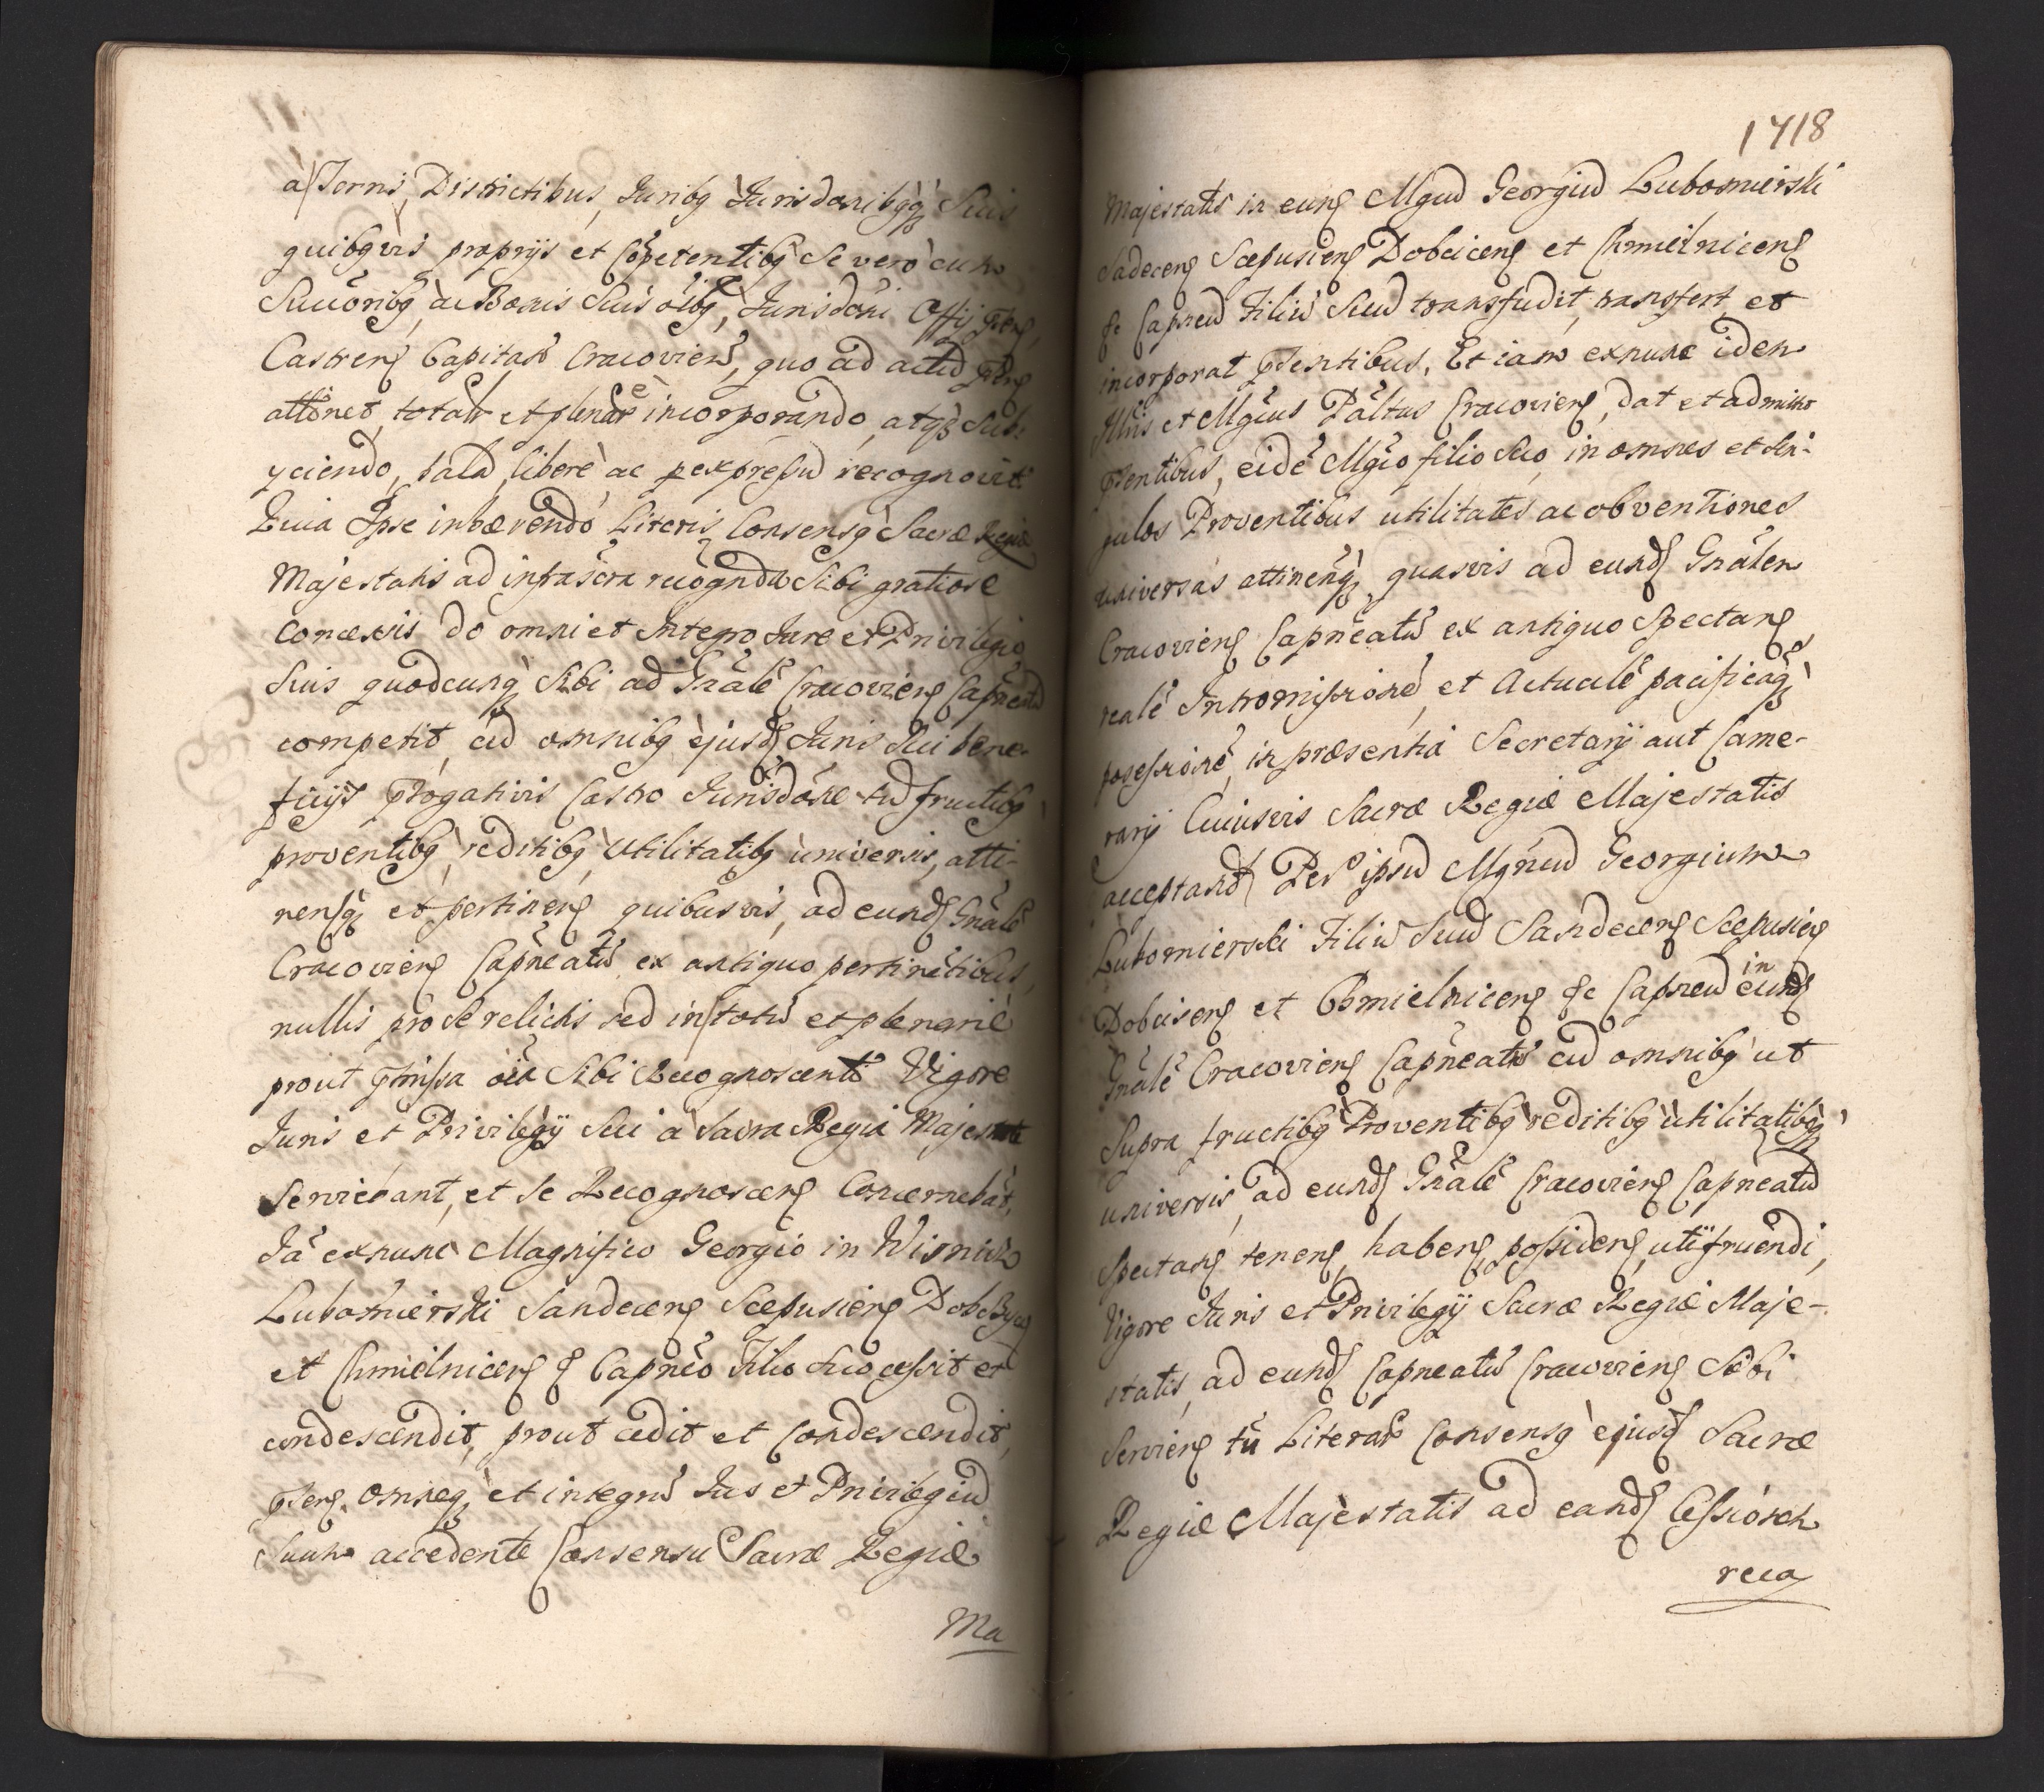 a Terris, Districtibus, Juribq Jurisdonibqq Suis
quibqvis proprijs et Cõpetentibq Se vero cum
Succõribq, ac Bonis Suis oibq, Jurisdõni Offi pñs,
Castrens Capitan Cracovien, quo ad actũ pñs
attinet, totalr et plenar è incorporando, atqz Sub-
yciendo, palã, liberè ac p expressũ recognovit.
Quia Ipse inhærendo Literis Consensq Sacræ Regiæ
Majestatis ad infrascra recognda Sibi gratiose
Concessis do omni et Integro Jure et Privilegio
Suis quodcunq Sibi ad Gnãlẽ Cracoviens Capneatũ
competit, cũ omnibq ejusd Juris Sui bene-
ficijs progativis Castro Jurisdõne tũ fructibq
proventibq, reditibq, Utilitatibq universis, atti-
nensq et pertinens quibusvis, ad eund Gnãlẽ
Cracoviens Capneatũ ex antiquo pertinẽtibus,
nullis pro se relictis sed in totũ et plenariè
prout pmissa oia Sibi Recognoscenti Vigore
Juris et Privilegÿ Sui a Sacra Regia Majestate
Serviebant, et Se Recognoscens Concernebãt,
Jã exnunc Magnifico Georgio in Wisnicz
Lubomierski Sandecens Scepusiens Dobczyces
et Chmielnicens p Capnẽo Filio Suo cessit et
condescendit, prout cedit et Condescendit,
pñs, omneq et integrũ Jus et Privilegiũ
Suum accedente Consensu Sacræ Regiæ
Ma
1718
Majestatis in eunq Mgcũ Georgiũ Lubomierski
Sadecens Scepusiens Dobcicens et Chmielnicens
&c Capneũ Filiũ Suũ transfudit, transfert et
incorporat pñsentibus. Et iam exnunc idem
Illris et Mgcus Pãltnus Cracoviens, dat et admittit
pñsentibus, eidẽ Mgco filio Suo, in omnes et Sin-
gulos Proventibus utilitates ac obventiones
universas attinenq quasvis ad eund Gnãlem
Cracoviens Capneatũ ex antiquo Spectans
realẽ Intromissionẽ, et Actualẽ pacificãq
posessionẽ, in præsentia Secretarÿ aut Came-
rarÿ Cuiusvis Sacræ Regiæ Majestatis
acceptand Per ipsũ Mgncũ Georgium
Lubomierski Filiũ Suũ Sandecens Scepusiens
Dobcisens et Chmielnicens &c Capneũ in eund
Gnãlẽ Cracoviens Capneatũ cũ omnibq ut
Supra fructibq Proventibq reditibq utilitatibqq
universis, ad eund Gnãlẽ Cracoviens Capneatũ
Spectans tenens, habens, possidens, utifruendi,
Vigore Juris et Privilegÿ Sacræ Regiæ Maje-
statis, ad eund Capneatũ Cracoviens Sibi
Serviens tũ Literar Consensq ejusd Sacræ
Regiæ Majestatis ad eand Cessionem
reco